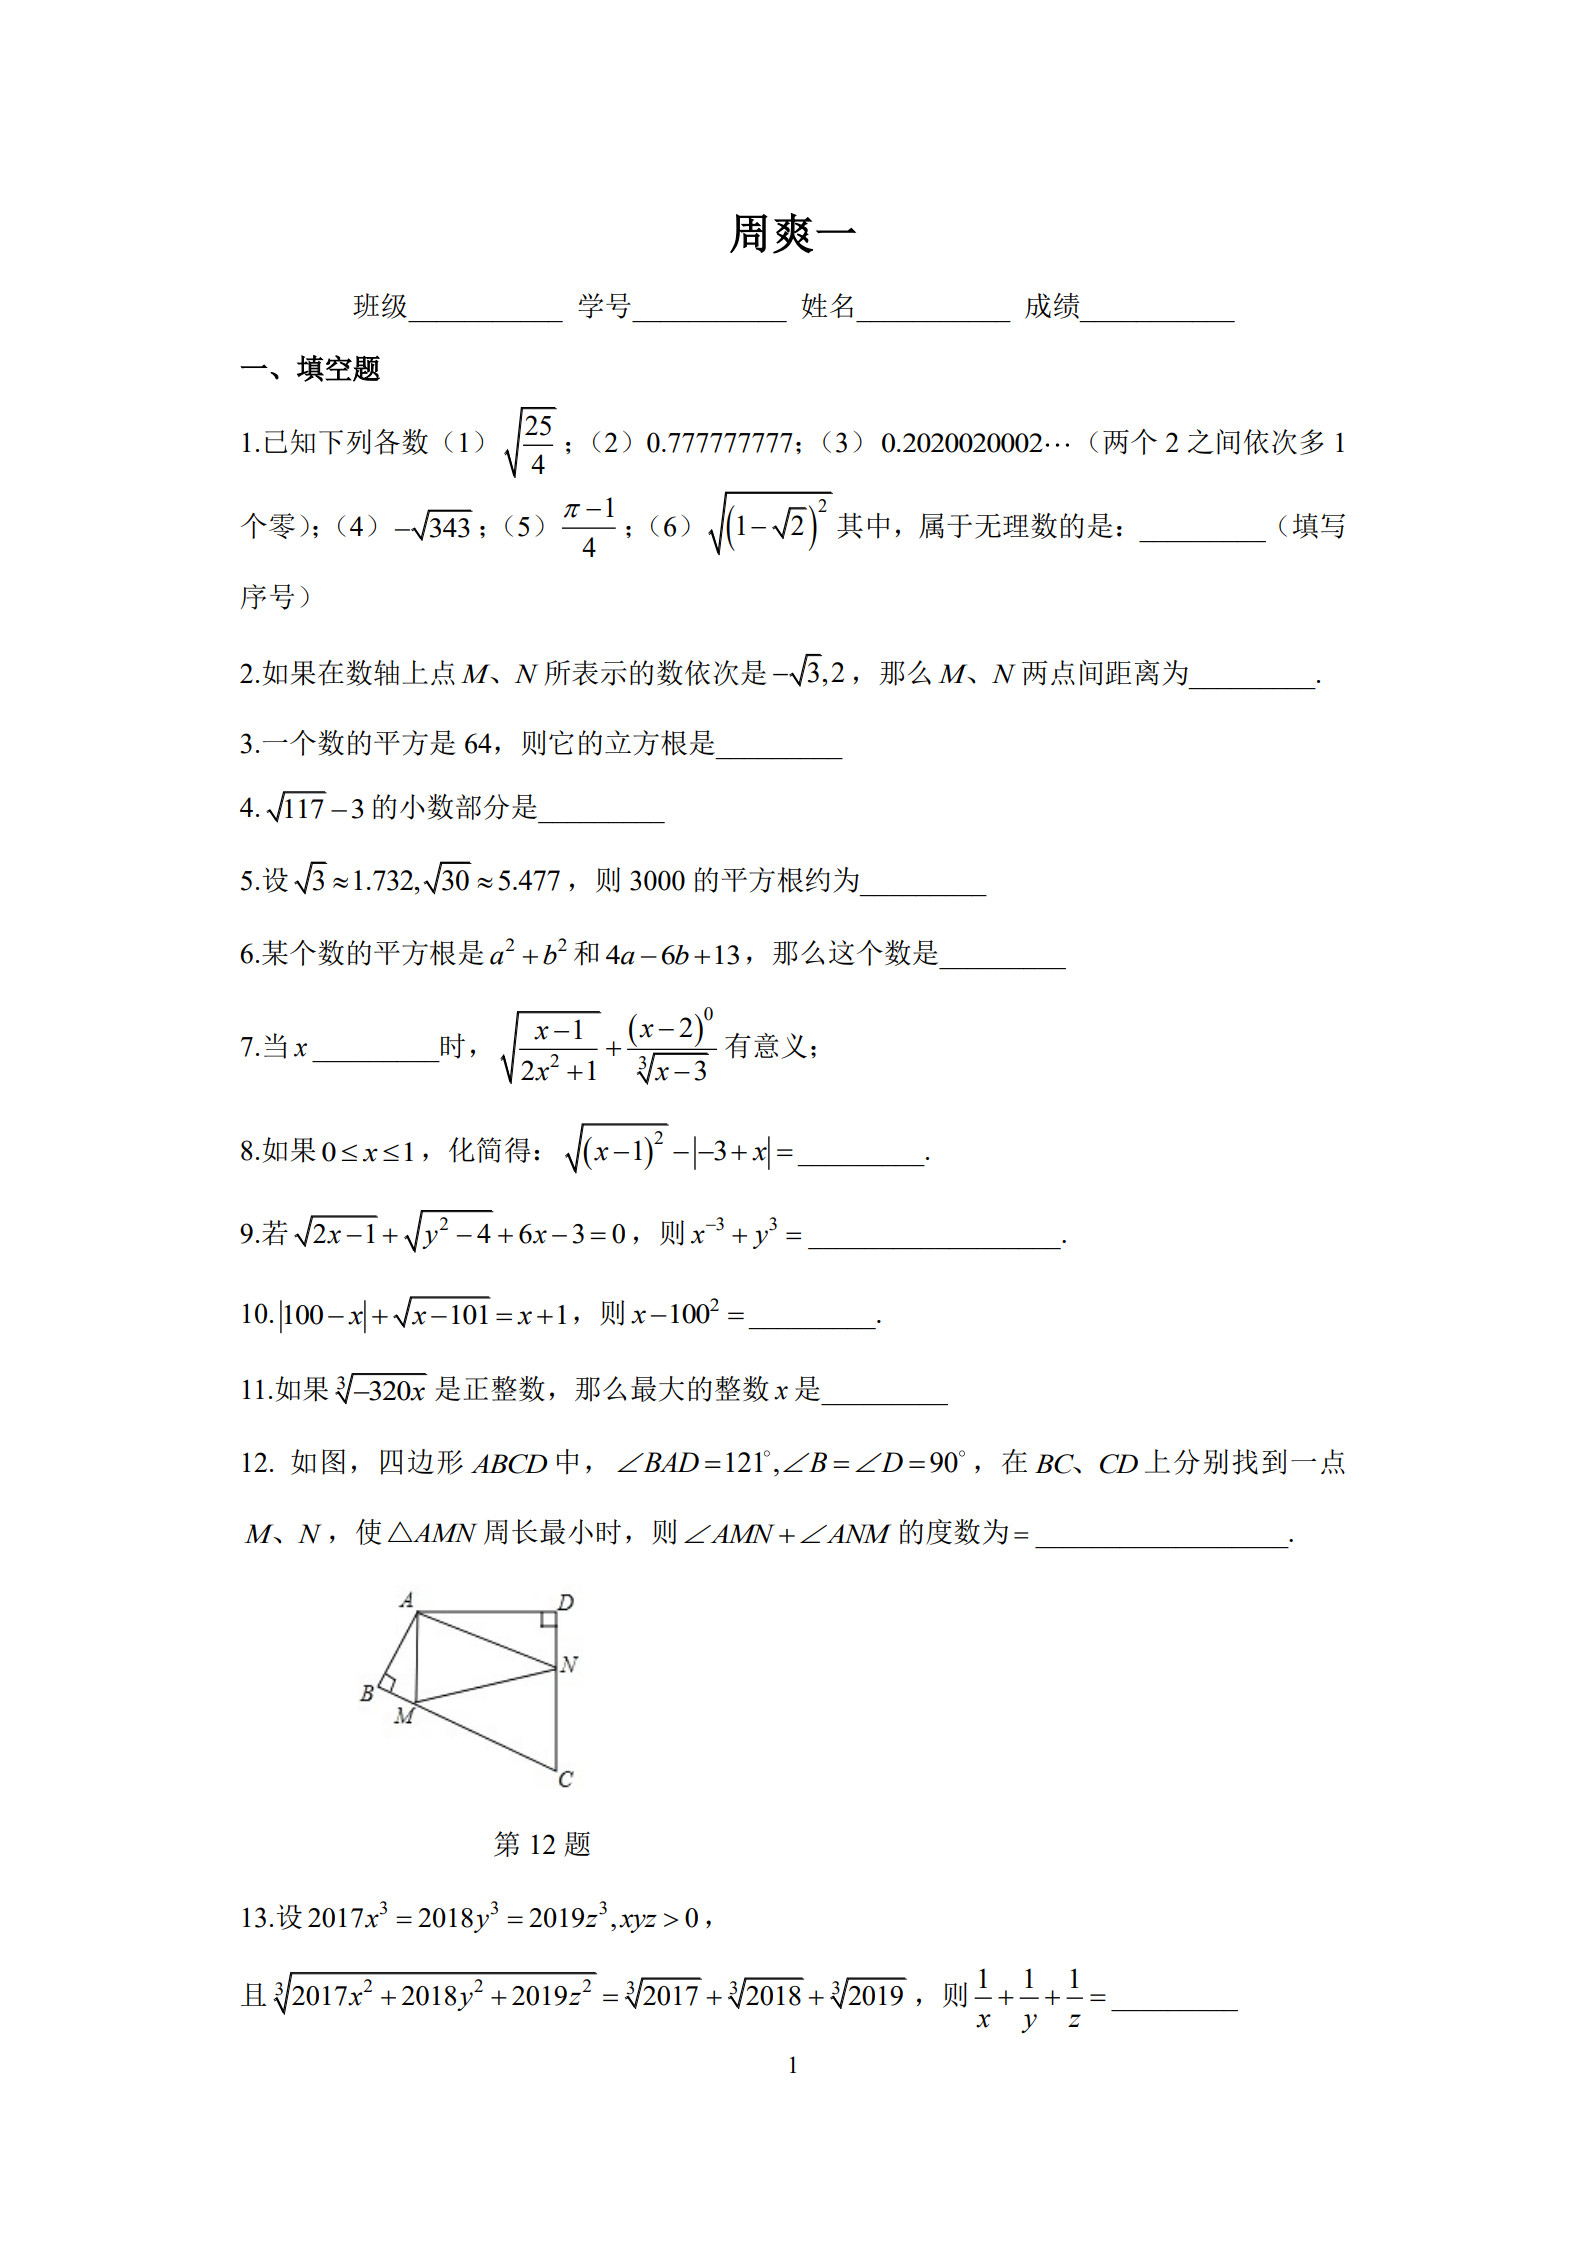 周爽一
班级___________ 学号___________ 姓名___________ 成绩___________
一、填空题
1.已知下列各数（1）√(25/4)；（2）0.777777777；（3）0.2020020002⋯（两个 2 之间依次多 1
个零）；（4）−√343；（5）(π−1)/4；（6）√((1−√2)²) 其中，属于无理数的是：_________（填写
序号）
2.如果在数轴上点 M、N 所表示的数依次是 −√3,2，那么 M、N 两点间距离为_________.
3.一个数的平方是 64，则它的立方根是_________
4. √117−3 的小数部分是_________
5.设 √3≈1.732,√30≈5.477，则 3000 的平方根约为_________
6.某个数的平方根是 a²+b² 和 4a−6b+13，那么这个数是_________
7.当 x_________时，√((x−1)/(2x²+1))+(x−2)⁰/∛(x−3) 有意义；
8.如果 0≤x≤1，化简得：√((x−1)²)−|−3+x|=_________.
9.若 √(2x−1)+√(y²−4)+6x−3=0，则 x⁻³+y³=__________________.
10.|100−x|+√(x−101)=x+1，则 x−100²=_________.
11.如果 ∛(−320x) 是正整数，那么最大的整数 x 是_________
12. 如图，四边形 ABCD 中，∠BAD=121°,∠B=∠D=90°，在 BC、CD 上分别找到一点
M、N，使△AMN 周长最小时，则∠AMN+∠ANM 的度数为=__________________.
A
D
N
B
M
C
第 12 题
13.设 2017x³=2018y³=2019z³,xyz>0，
且 ∛(2017x²+2018y²+2019z²)=∛2017+∛2018+∛2019，则 1/x+1/y+1/z=_________
1